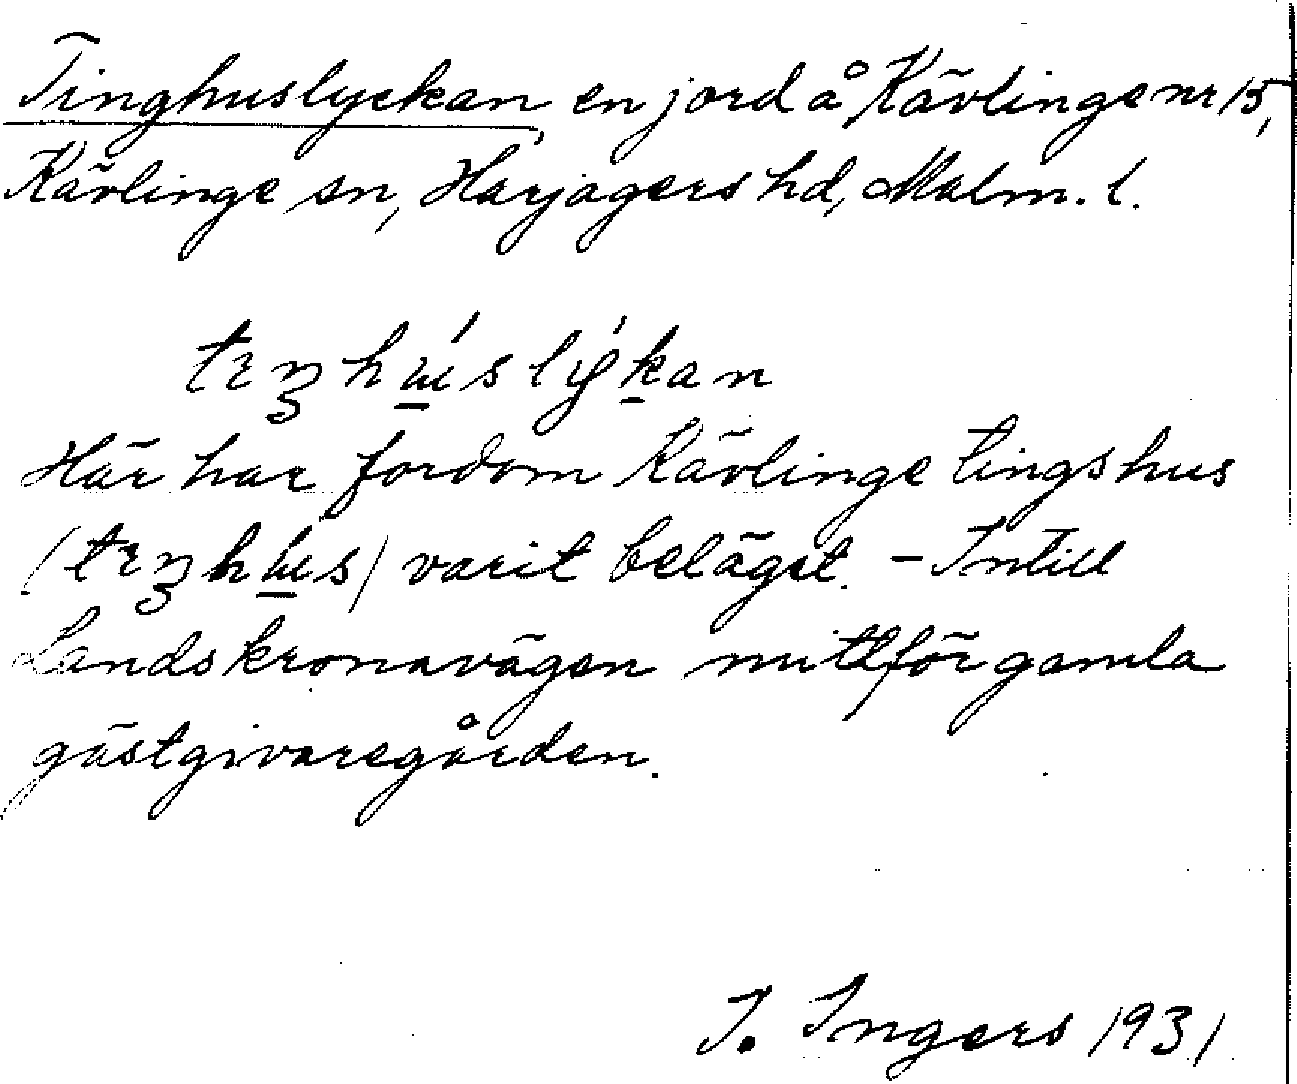 Tinghuslyckan, en jord å Kävlinge nr 15,
Kävlinge sn, Harjagers hd, Malm. l.
tıŋhú̱slýḵan
Här har fordom Kävlinge tingshus
(tıŋhú̱s) varit beläget. – Intill
Landskronavägen mittför gamla
gästgivaregården.
I. Ingers 1931